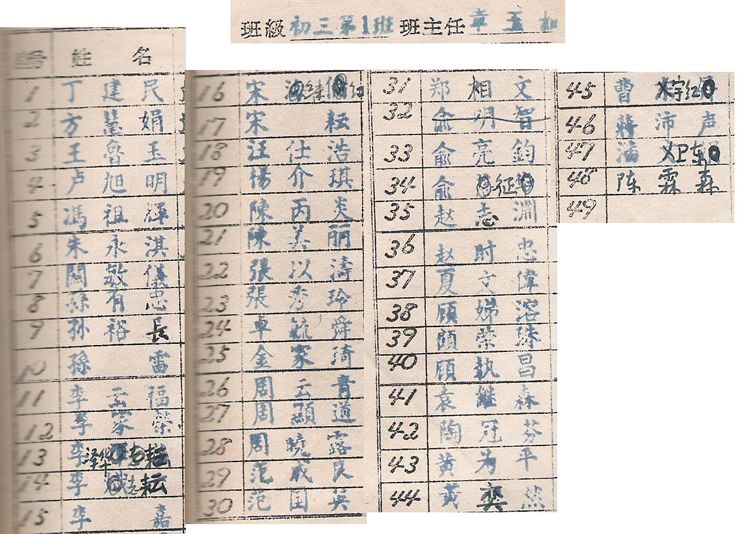 班級 初三第1班 班主任 章玉
姓 名
1 丁建民
2 方慧娟
3 王魯玉
4 卢旭明
5 馮祖
6 朱永淇
7 闕敏儀
8 孫有忠
9 孙裕長
10 孫雷
11 李云福
12 李家榮
13 李
14 李耘
15 李嘉
16 宋
17 宋耘
18 汪仕浩
19 楊介琪
20 陳丙炎
21 陳美丽
22 張以濤
23 張秀玲
24 卓毓舜
25 金家琦
26 周云青
27 周顯道
28 周曉露
29 范成良
30 范国英
31 郑相文
32 俞明智
33 俞亮鈞
34 俞征
35 赵志淵
36 赵时忠
37 夏文偉
38 顧娣溶
39 顧榮
40 顧執昌
41 袁継森
42 陶冠芬
43 黄为平
44 黄奕
45 曹
46 蔣沛声
47 潘
48 陈霖森
49